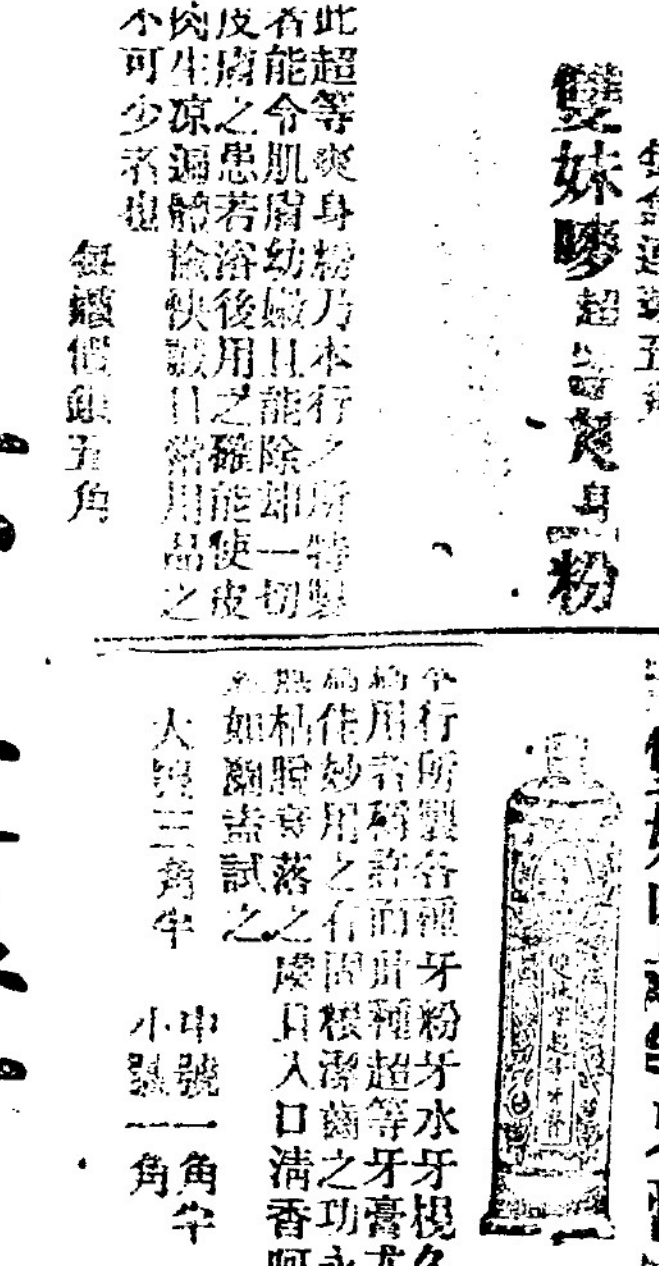 雙妹嘜超等爽身粉
此超等爽身粉乃本行之所特製
者能令肌膚幼嫩且能除却一切
皮膚之患若浴後用之確能使皮
肉生凉遍體愉快誠日常用品之
不可少者也
每罐價銀五角
行所製各種牙粉牙水牙梘久
用者稱許而此種超等牙膏尤
佳妙用之有固根潔齒之功永
無枯脫衰落之虞且入口清香阿
如蘭盍試之
大號三角半
中號一角半
小號一角